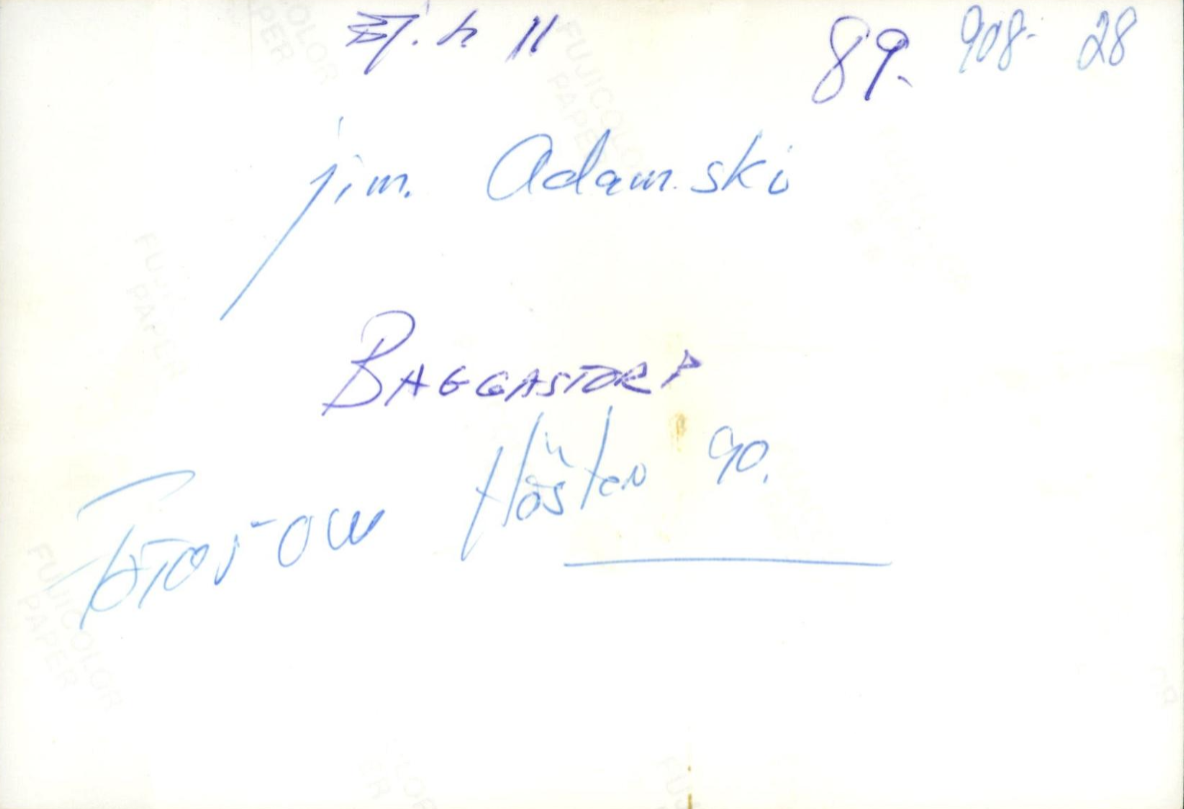 89. 908- 28
jim. Adamski
BAGGASTORP
Hösten 90.
FUJICOLOR
PAPER